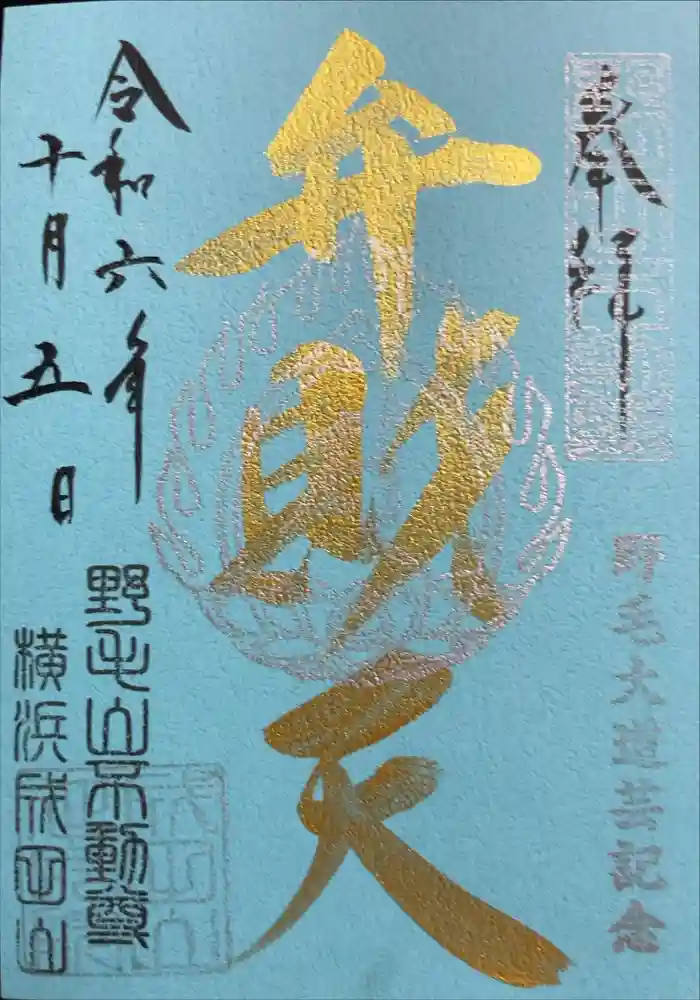 奉拝
野毛大道芸記念
弁財天
令和六年
十月五日
野毛山不動尊
横浜成田山